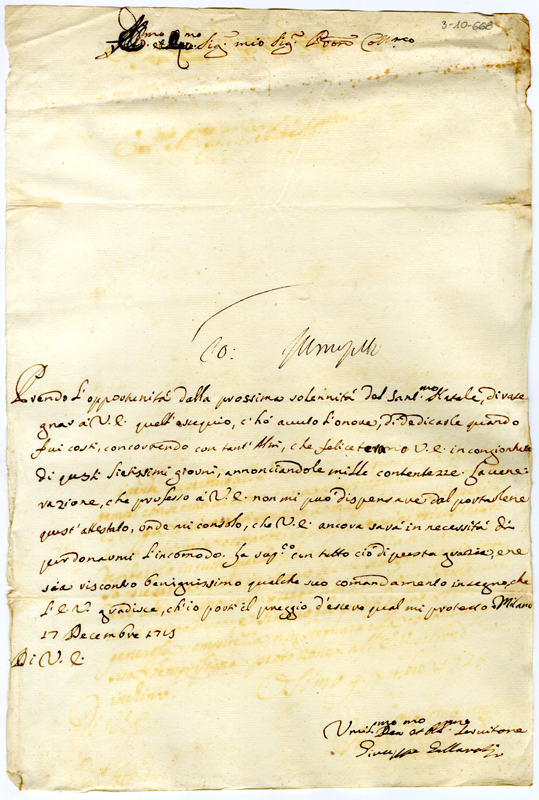 3-10-668
Ill.mo et Ecc.mo Sig.r mio Sig.r Pron Coll.mo
Co:
Prendo l'opportunità dalla prossima solennità del Sant.mo Natale, di rase-
gnar à V. E. quell'esequio, c'hò avuto l'onore, di dedicarle quando
fui costì, concorrendo con tant'Altri, che feliceterano V. E. in congiontura
di questi lietissimi giorni, annonciandole mille contentezze. La vene-
razione, che professo à V. E. non mi può dispensare dal portarlene
quest'attestato, onde mi consolo, che V. E. ancora sarà in necessità di
perdonarmi l'incomodo. La sup.co con tutto ciò di questa grazia, e ne
sia riscontro benignissimo qualche suo comandamento in segno, che
l'E. V. gradisce, ch'io porti il preggio d'essere qual mi protesto Milano
17 Decembre 1715
Di V. E.
Umil.mo Dev.mo et Obl.mo Servitore
Giuseppe